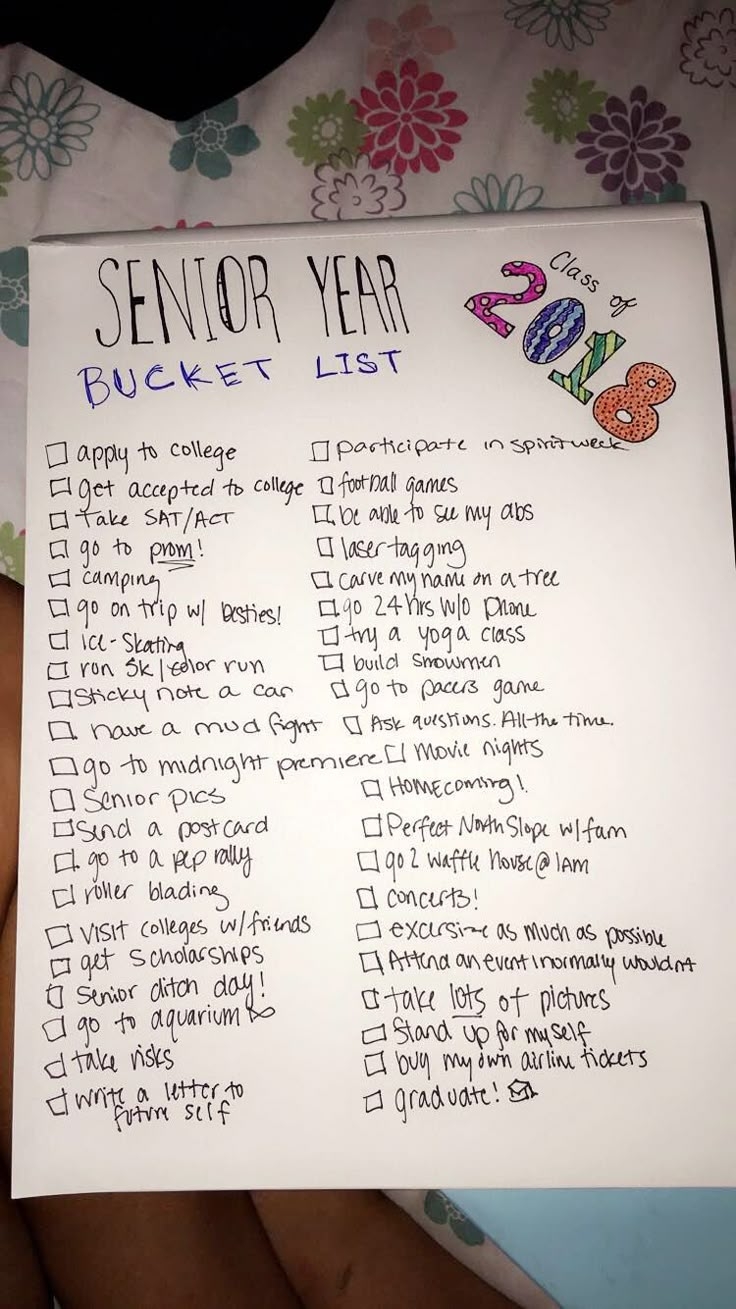 SENIOR YEAR
BUCKET LIST
Class of
2018
apply to college
get accepted to college
Take SAT/ACT
go to prom!
camping
go on trip w/ besties!
ice-skating
run 5k/color run
Sticky note a car
have a mud fight
go to midnight premiere
Senior pics
Send a postcard
go to a pep rally
roller blading
visit colleges w/friends
get scholarships
Senior ditch day!
go to aquarium
take risks
write a letter to
future self
participate in spirit week
football games
be able to see my abs
laser tagging
carve my name on a tree
go 24 hrs w/o phone
try a yoga class
build snowmen
go to pacers game
Ask questions. All the time.
Movie nights
HOMEcoming!
Perfect North Slope w/fam
go 2 waffle house @ 1AM
concerts!
excersise as much as possible
Attend an event I normally wouldnt
take lots of pictures
Stand up for myself
buy my own airline tickets
graduate!